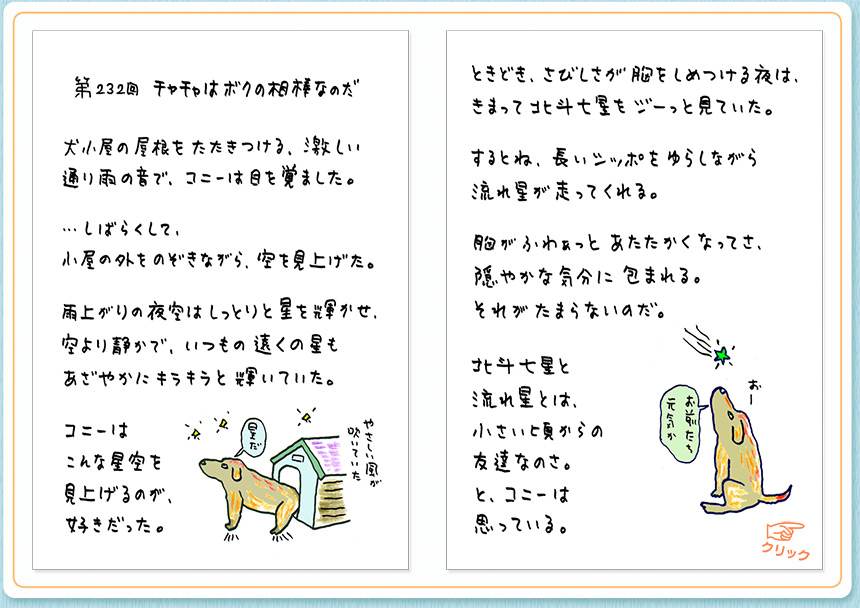 第232回 チャチャはボクの相棒なのだ
犬小屋の屋根をたたきつける、激しい
通り雨の音で、コニーは目を覚ました。
…しばらくして、
小屋の外をのぞきながら、空を見上げた。
雨上がりの夜空はしっとりと星を輝かせ、
空より静かで、いつもの遠くの星も
あざやかにキラキラと輝いていた。
コニーは
こんな星空を
見上げるのが、
好きだった。
星だ
やさしい風が
吹いていた
ときどき、さびしさが胸をしめつける夜は、
きまって北斗七星をジーっと見ていた。
するとね、長いシッポをゆらしながら
流れ星が走ってくれる。
胸がふわぁっとあたたかくなってさ、
穏やかな気分に包まれる。
それがたまらないのだ。
北斗七星と
流れ星とは、
小さい頃からの
友達なのさ。
と、コニーは
思っている。
おー
お前たち
元気か
クリック